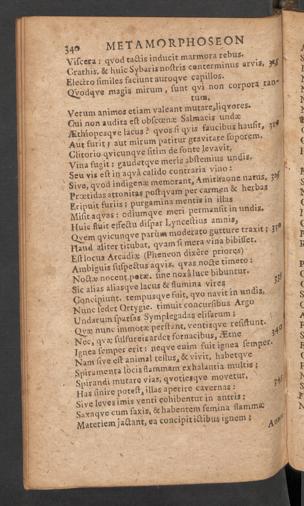 340 METAMORPHOSEON
Viscera: qvod tactis inducit marmora rebus.
Crathis, & huic Sybaris nostris conterminus arvis, 315
Electro similes faciunt auroqve capillos.
Qvodqve magis mirum, sunt qvi non corpora tan-
tum,
Verum animos etiam valeant mutare liqvores.
Cui non audita est obscœnæ Salmacis undæ
Æthiopesqve lacus? qvos si qvis faucibus hausit, 320
Aut furit; aut mirum patitur gravitate soporem.
Clitorio qvicunqve sitim de fonte levavit,
Vina fugit: gaudetqve meris abstemius undis.
Seu vis est in aqvâ calido contraria vino:
Sive, qvod indigenæ memorant, Amithaone natus, 325
Prætidas attonitas postqvam per carmen & herbas
Eripuit furiis; purgamina mentis in illas
Misit aqvas: odiumqve meri permansit in undis.
Huic fluit effectu dispar Lyncestius amnis,
Qvem qvicunqve parùm moderato gutture traxit; 330
Haud aliter titubat, qvam si mera vina bibisset.
Est locus Arcadiæ (Pheneon dixêre priores)
Ambiguis suspectus aqvis, qvas nocte timeto:
Noctæ nocent potæ, sine noxâ luce bibuntur.
Sic alias aliasqve lacus & flumina vires 335
Concipiunt. tempusqve fuit, qvo navit in undis,
Nunc sedet Ortygie. timuit concursibus Argo
Undarum sparsas Symplegadas elisarum;
Qvæ nunc immotæ perstant, ventisqve resistunt.
Nec, qvæ sulfureis ardet fornacibus, Ætne 340
Ignea semper erit: neqve enim fuit ignea semper.
Nam sive est animal tellus, & vivit, habetqve
Spiramenta locis flammam exhalantia multis;
Spirandi mutare vias, qvotiesqve movetur,
Has finire potest, illas aperire cavernas: 345
Sive leves imis venti cohibentur in antris;
Saxaqve cum saxis, & habentem semina flammæ
Materiem jactant, ea concipit ictibus ignem;